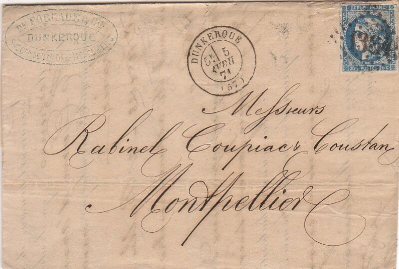 DUNKERQUE
DUNKERQUE
5
AVRIL
71
(57)
Messieurs
Rabinel Coupiac & Coustan
Montpellier